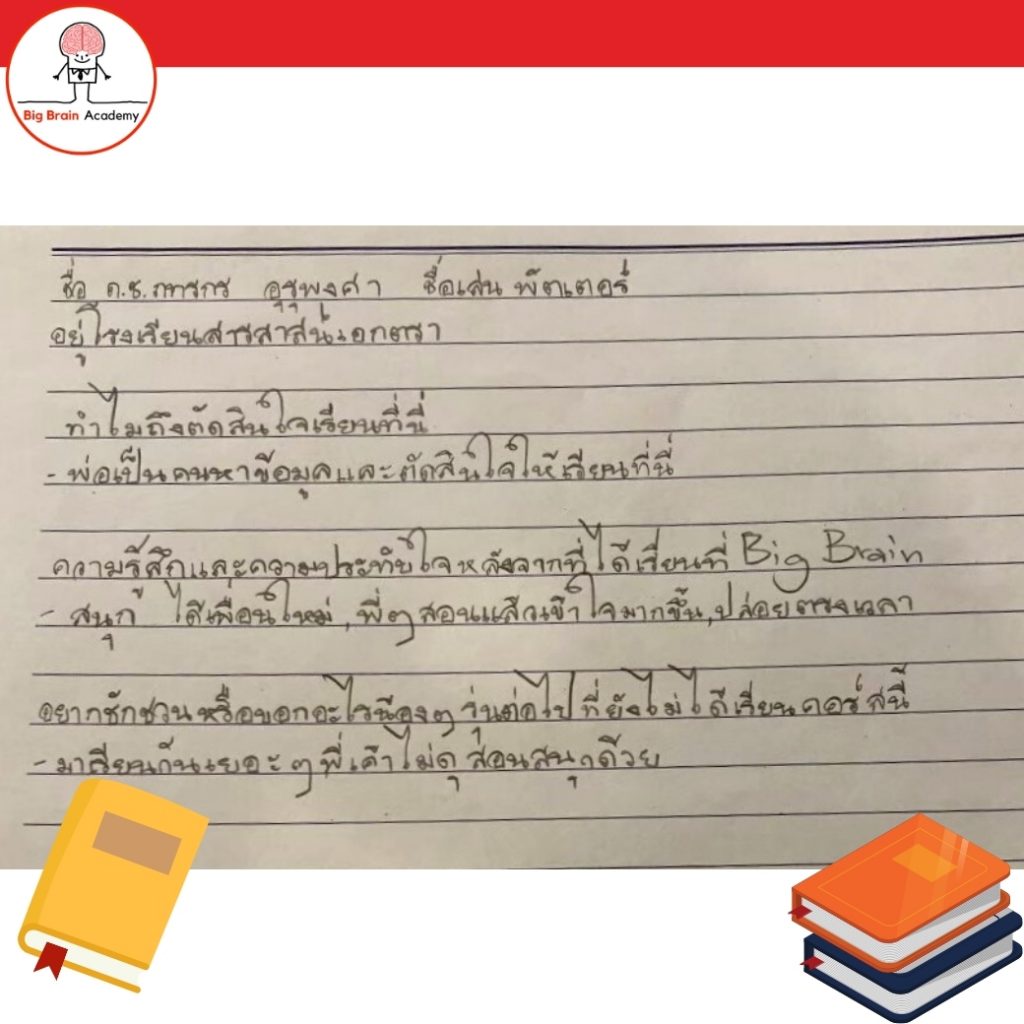 Big Brain Academy
ชื่อ ด.ช.ภัทรกร อุรุพงศา ชื่อเล่น พัตเตอร์
อยู่โรงเรียนสารสาสน์เอกตรา
ทำไมถึงตัดสินใจเรียนที่นี่
- พ่อเป็นคนหาข้อมูลและตัดสินใจให้เรียนที่นี่
ความรู้สึกและความประทับใจหลังจากที่ได้เรียนที่ Big Brain
- สนุก ได้เพื่อนใหม่, พี่ๆ สอนแล้วเข้าใจมากขึ้น, ปล่อยตรงเวลา
อยากชักชวนหรือบอกอะไรน้องๆ รุ่นต่อไปที่ยังไม่ได้เรียนคอร์สนี้
- มาเรียนกันเยอะๆ พี่เค้าไม่ดุ สอนสนุกด้วย